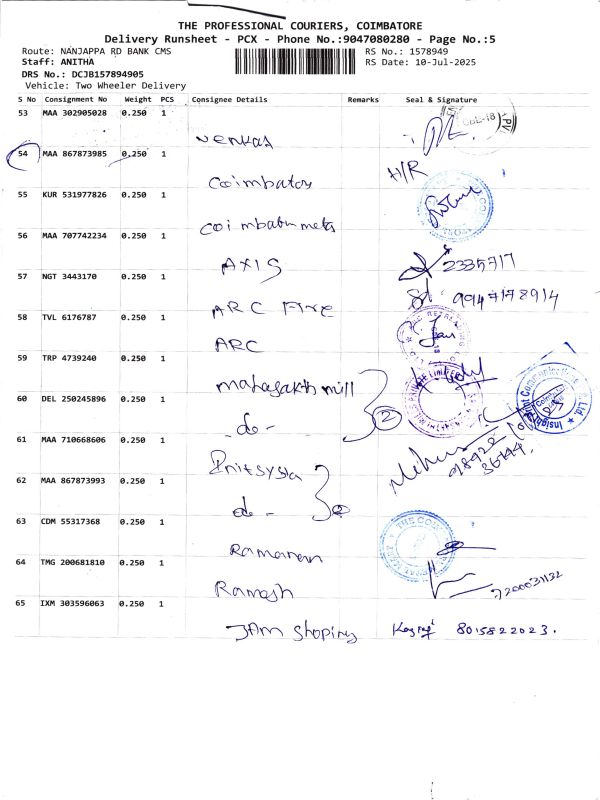 THE PROFESSIONAL COURIERS, COIMBATORE
Delivery Runsheet - PCX - Phone No.:9047080280 - Page No.:5
Route: NANJAPPA RD BANK CMS RS No.: 1578949
Staff: ANITHA RS Date: 10-Jul-2025
DRS No.: DCJB157894905
Vehicle: Two Wheeler Delivery
S No Consignment No Weight PCS Consignee Details Remarks Seal & Signature
53 MAA 302905028 0.250 1
venkat
54 MAA 867873985 0.250 1
H/R
Coimbatore
55 KUR 531977826 0.250 1
Coimbatu mets
56 MAA 707742234 0.250 1
AXIS 2335717
57 NGT 3443170 0.250 1
ARC Fire 9947178914
58 TVL 6176787 0.250 1
ARC
59 TRP 4739240 0.250 1
mahasakthi mill
60 DEL 250245896 0.250 1
2
-do-
61 MAA 710668606 0.250 1
62 MAA 867873993 0.250 1
do-
63 CDM 55317368 0.250 1
Ramanan
64 TMG 200681810 0.250 1
Ramesh 7200031132
65 IXM 303596063 0.250 1
JAM Shoping 8015822023.